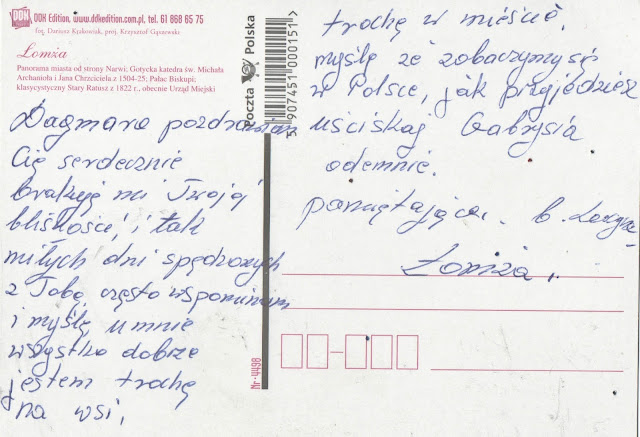 DDK Edition, www.ddkedition.com.pl, tel. 61 868 65 75
fot. Dariusz Krakowiak, proj. Krzysztof Gąszewski
Łomża
Panorama miasta od strony Narwi; Gotycka katedra św. Michała
Archanioła i Jana Chrzciciela z 1504-25; Pałac Biskupi;
klasycystyczny Stary Ratusz z 1822 r., obecnie Urząd Miejski
Poczta Polska
5 907451 000151 >
Nr-4498
Dagmara pozdrawiam
Cię serdecznie
brakuję mi Twojej
bliskość, i tak
miłych dni spędzonych
z Tobą, często wspominam
i myślę, u mnie
wszystko dobrze
jestem trochę
na wsi,
trochę w mieście,
myślę że zobaczymy się
w Polsce, jak przyjedziesz
uściskaj Gabrysia
odemnie.
pamiętająca.
Łomża,